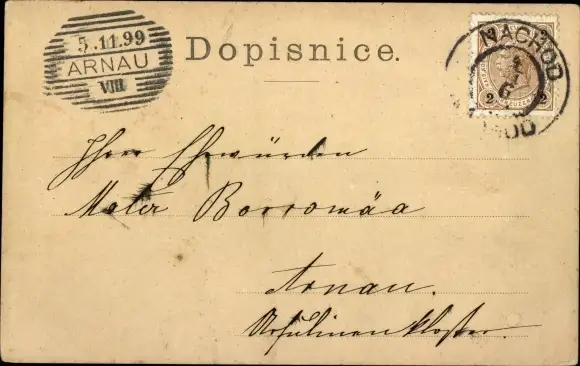 5.11.99
ARNAU
VIII
Dopisnice.
NACHOD
6
NACHOD
2 2
Ihrer Ehrwürden
Mater Borromäa
Arnau.
Ursulinenkloster.